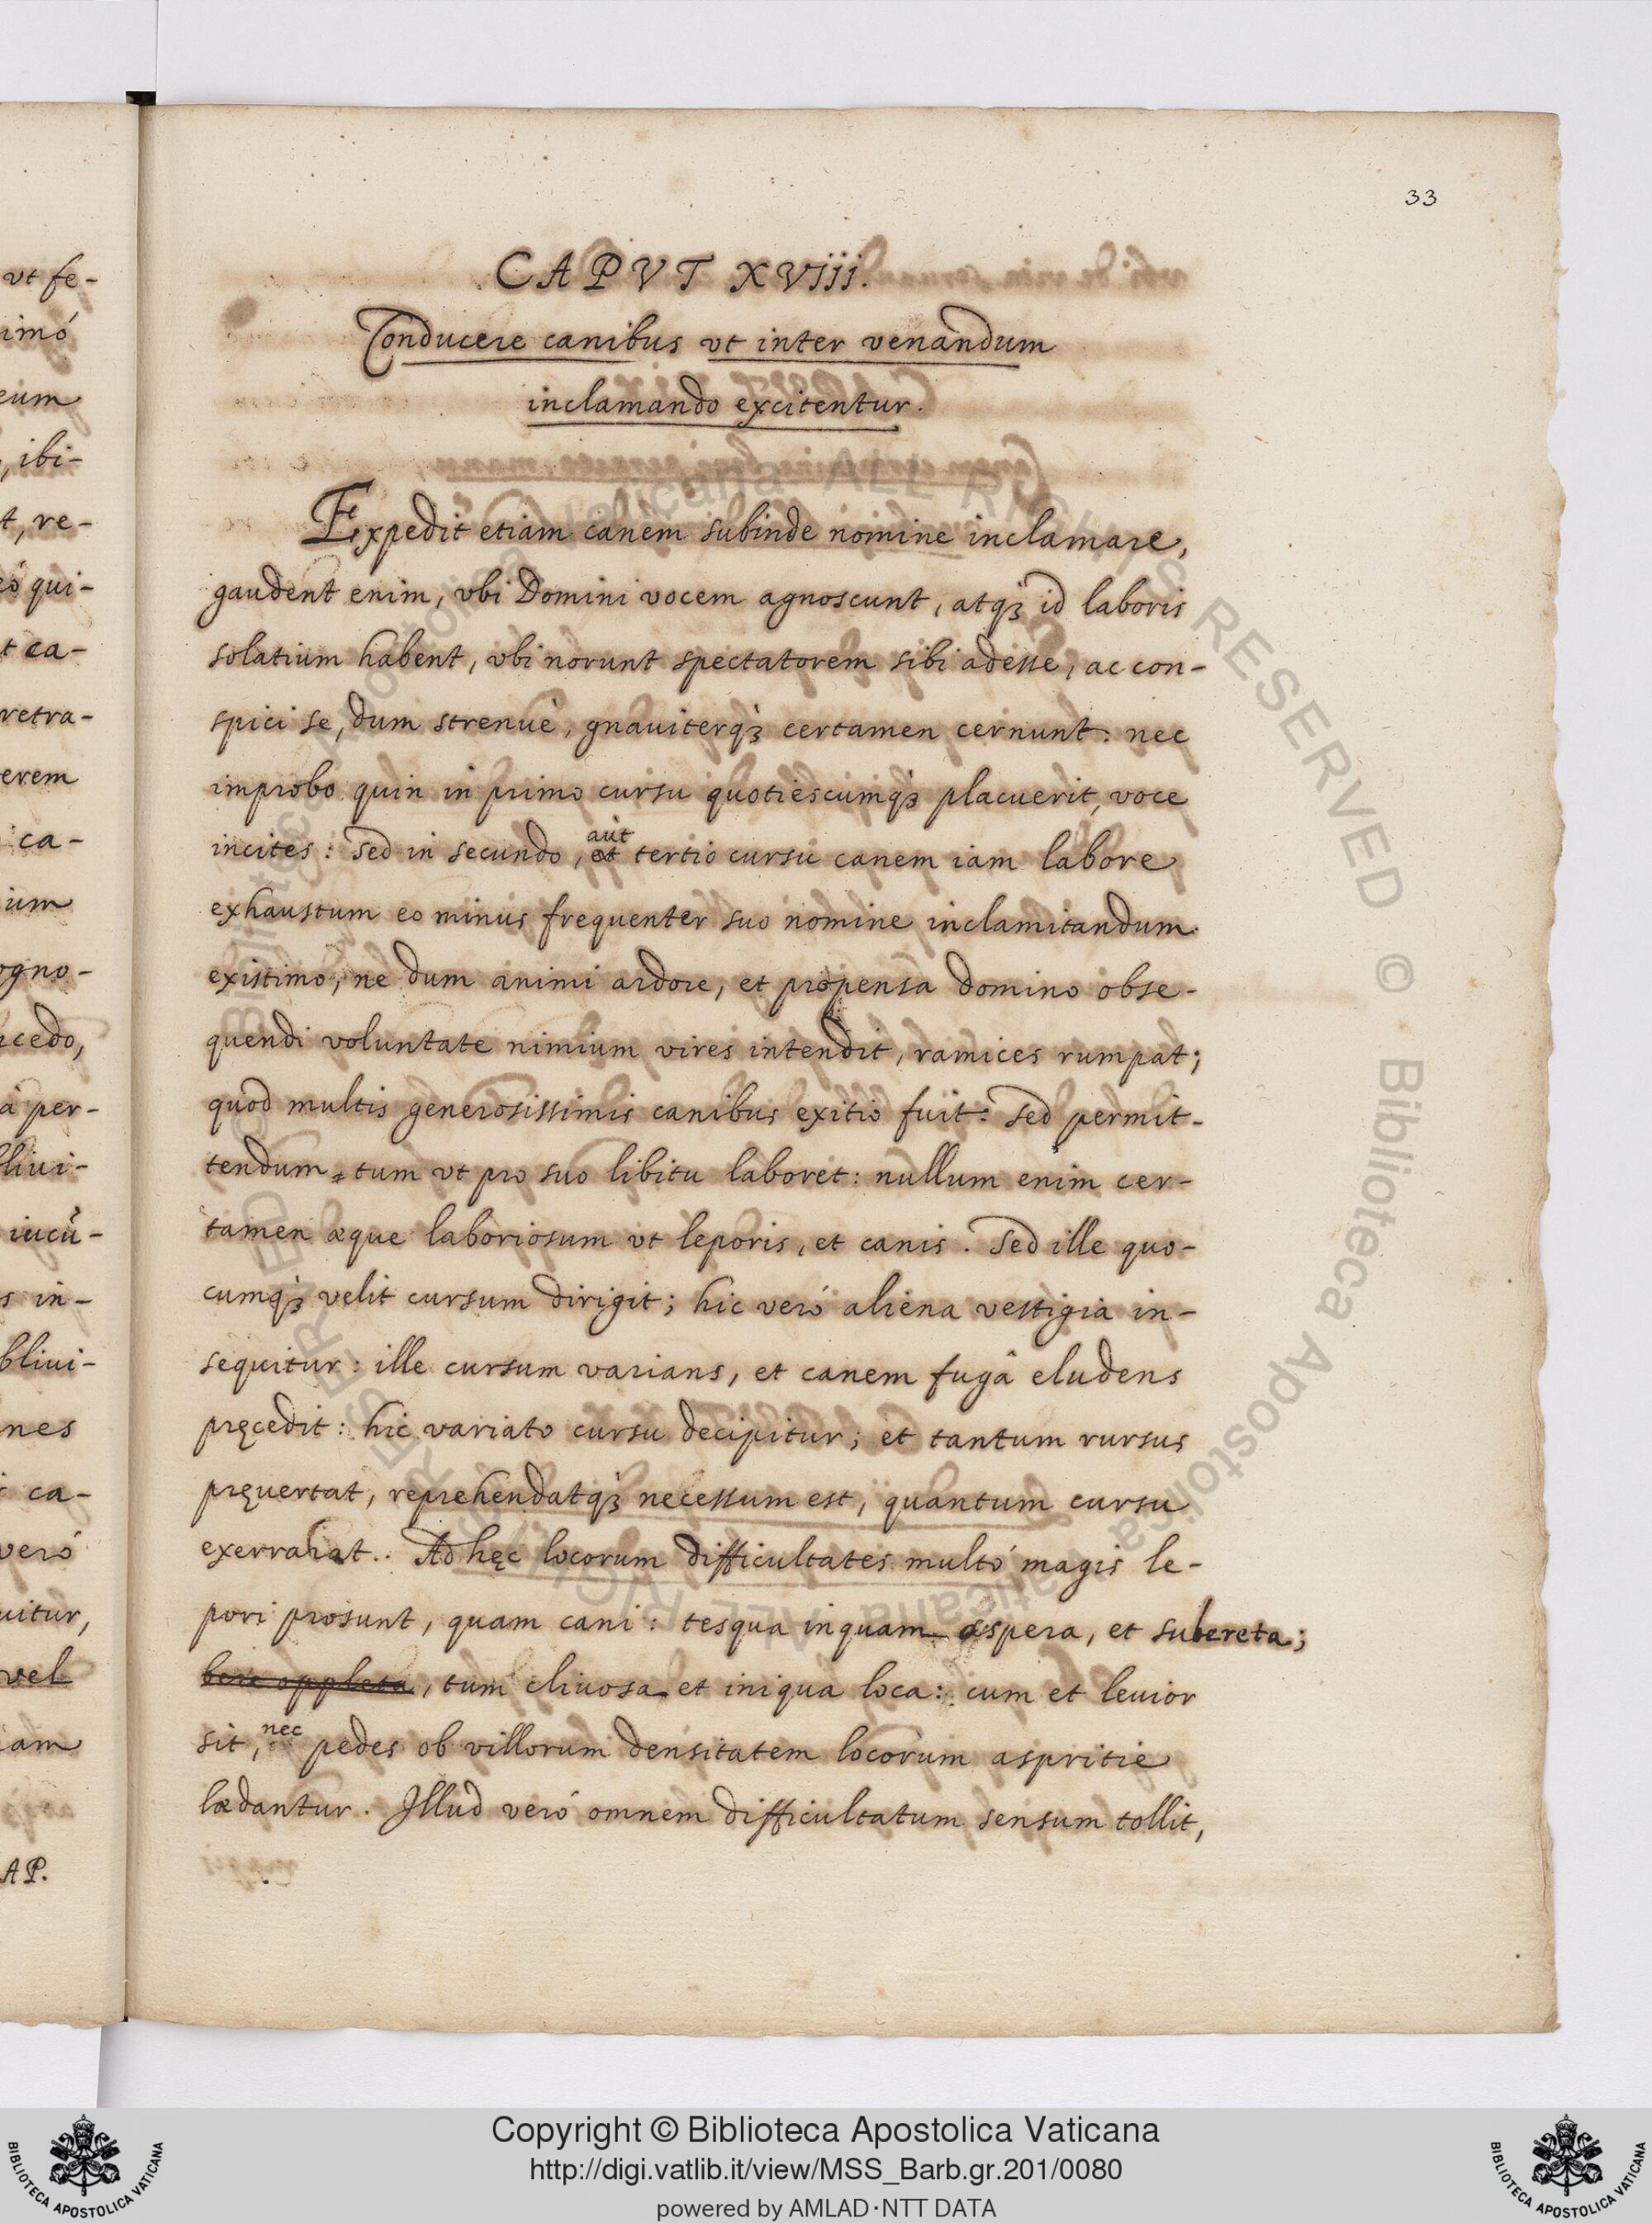 33
CAPVT XViii.
Conducere canibus vt inter venandum
inclamando excitentur.
Expedit etiam canem subinde nomine inclamare,
gaudent enim, vbi Domini vocem agnoscunt, atqꝫ id laboris
solatium habent, vbi norunt spectatorem sibi adesse, ac con-
spici se, dum strenuè, gnauiterqꝫ certamen cernunt: nec
improbo quin in primo cursu quotiescumqꝫ placuerit, voce
incites: Sed in secundo, aut
et tertio cursu canem iam labore
exhaustum eo minus frequenter suo nomine inclamitandum
existimo, ne dum animi ardore, et propensa domino obse-
quendi voluntate nimium vires intendit, ramices rumpat;
quod multis generosissimis canibus exitio fuit: Sed permit-
tendum tum vt pro suo libitu laboret: nullum enim cer-
tamen æque laboriosum vt leporis, et canis. Sed ille quo-
cumqꝫ velit cursum dirigit; hic veró aliena vestigia in-
sequitur: ille cursum varians, et canem fugâ eludens
pręcedit: hic variato cursu decipitur; et tantum rursus
pręuertat, reprehendatqꝫ necessum est, quantum cursu
exerrarat. Ad hęc locorum difficultates multó magis le-
pori prosunt, quam cani: tesqua inquam aspera, et subereta;
bere oppleta, tum cliuosa et iniqua loca: cum et leuior
sit, nec pedes ob villorum densitatem locorum aspritie
lædantur. Illud veró omnem difficultatum sensum tollit,
vt fe-
imó
eum
, ibi-
t, re-
eó qui-
t ca-
retra-
erem
ca-
ium
ogno-
cedo,
a per-
bliui-
iucũ-
s in-
bliui-
nes
ca-
veró
uitur,
vel
iam
AP.
Copyright © Biblioteca Apostolica Vaticana
http://digi.vatlib.it/view/MSS_Barb.gr.201/0080
powered by AMLAD·NTT DATA
BIBLIOTECA APOSTOLICA VATICANA
BIBLIOTECA APOSTOLICA VATICANA